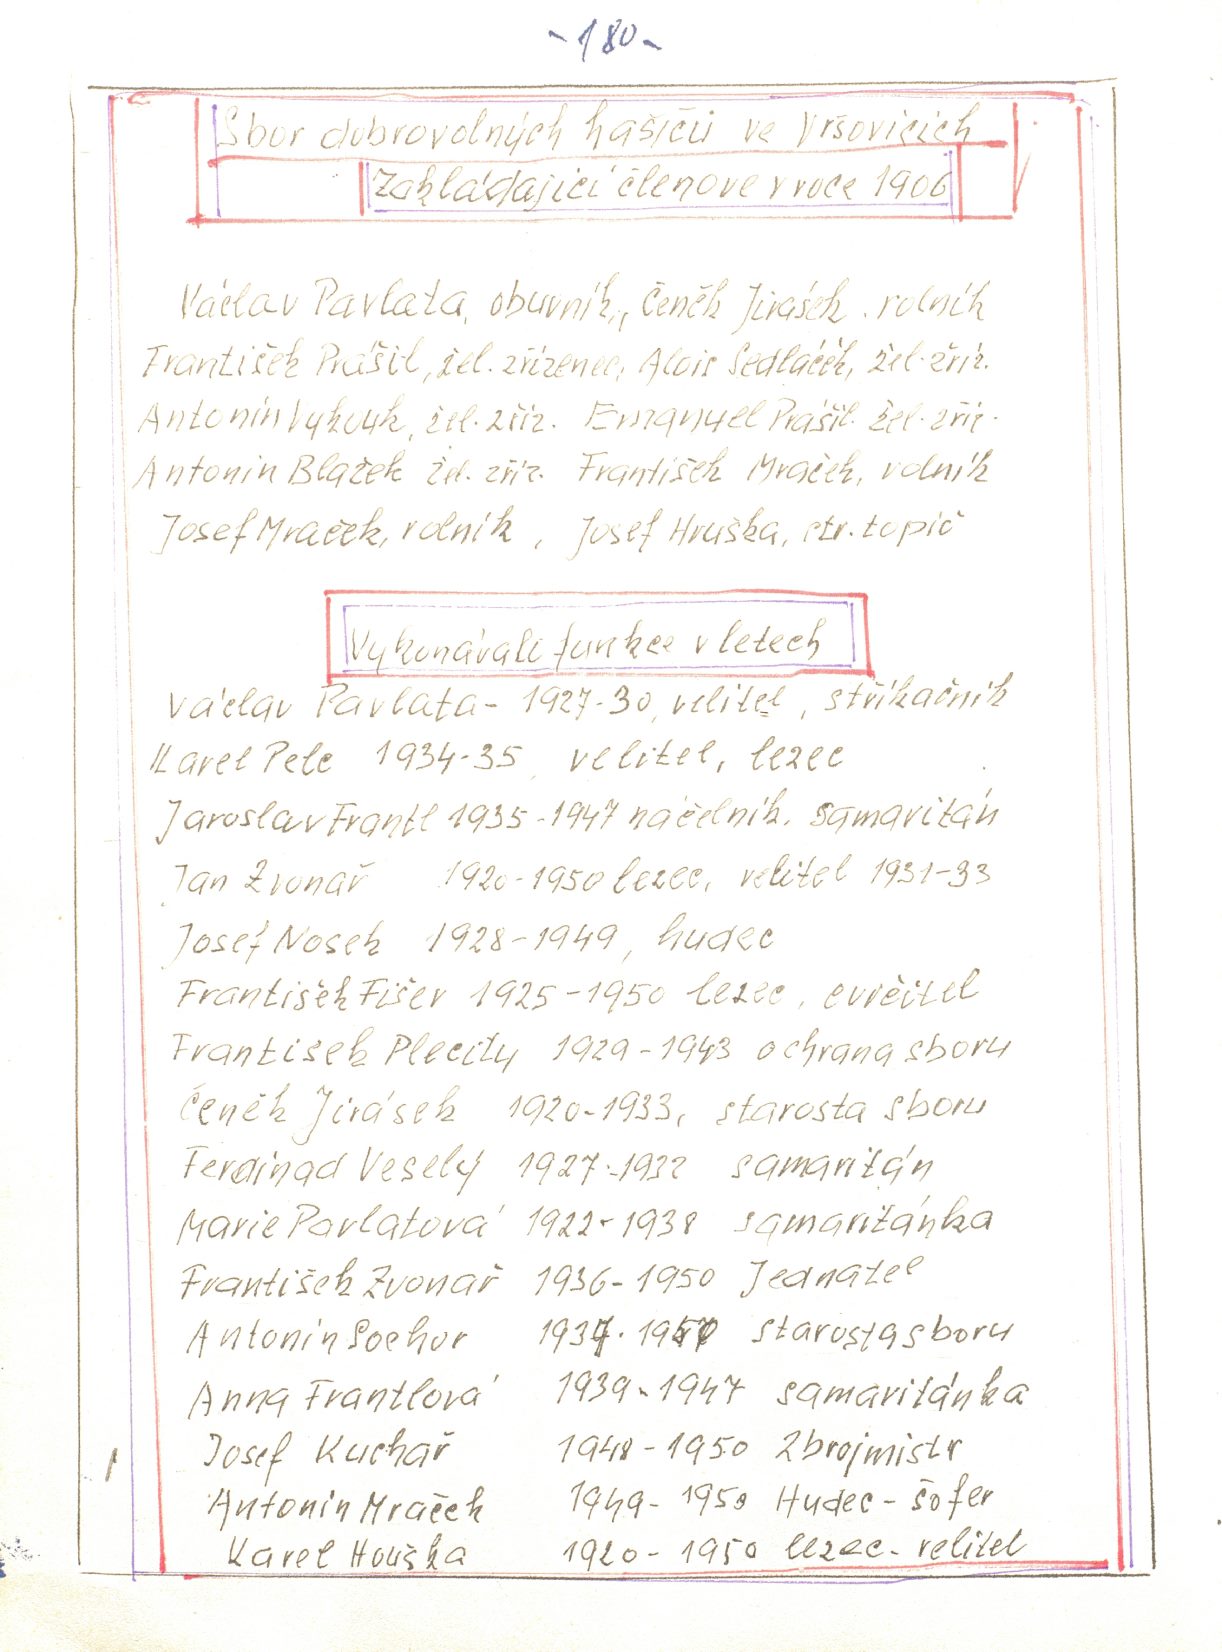 -180-
Sbor dobrovolných hasičů ve Vršovicích
Zakládající členové v roce 1906
Václav Pavlata, obuvník, Čeněk Jirásek. rolník
František Prášil, žel. zřízenec, Alois Sedláček, žel. zříz.
Antonín Vykouk, žel. zříz. Emanuel Prášil. žel. zříz.
Antonín Blažek žel. zříz. František Mraček, rolník
Josef Mraček, rolník, Josef Hruška, str. topič
Vykonávali funkce v letech
Václav Pavlata - 1927-30, velitel, stříkačník
Karel Pelc 1934-35, velitel, lezec
Jaroslav Frantl 1935-1947 náčelník. samaritán
Jan Zvonař 1920-1950 lezec, velitel 1931-33
Josef Nosek 1928-1949, hudec
František Fišer 1925-1950 lezec, cvičitel
František Plecitý 1929-1943 ochrana sboru
Čeněk Jirásek 1920-1933, starosta sboru
Ferdinad Veselý 1927-1932 samaritán
Marie Pavlatová 1922-1938 samaritánka
František Zvonař 1936-1950 Jednatel
Antonín Sochor starosta sboru
Anna Frantlová 1939-1947 samaritánka
Josef Kuchař 1948-1950 Zbrojmistr
Antonín Mraček 1949-1950 Hudec - šofer
Karel Houška 1920-1950 lezec - velitel